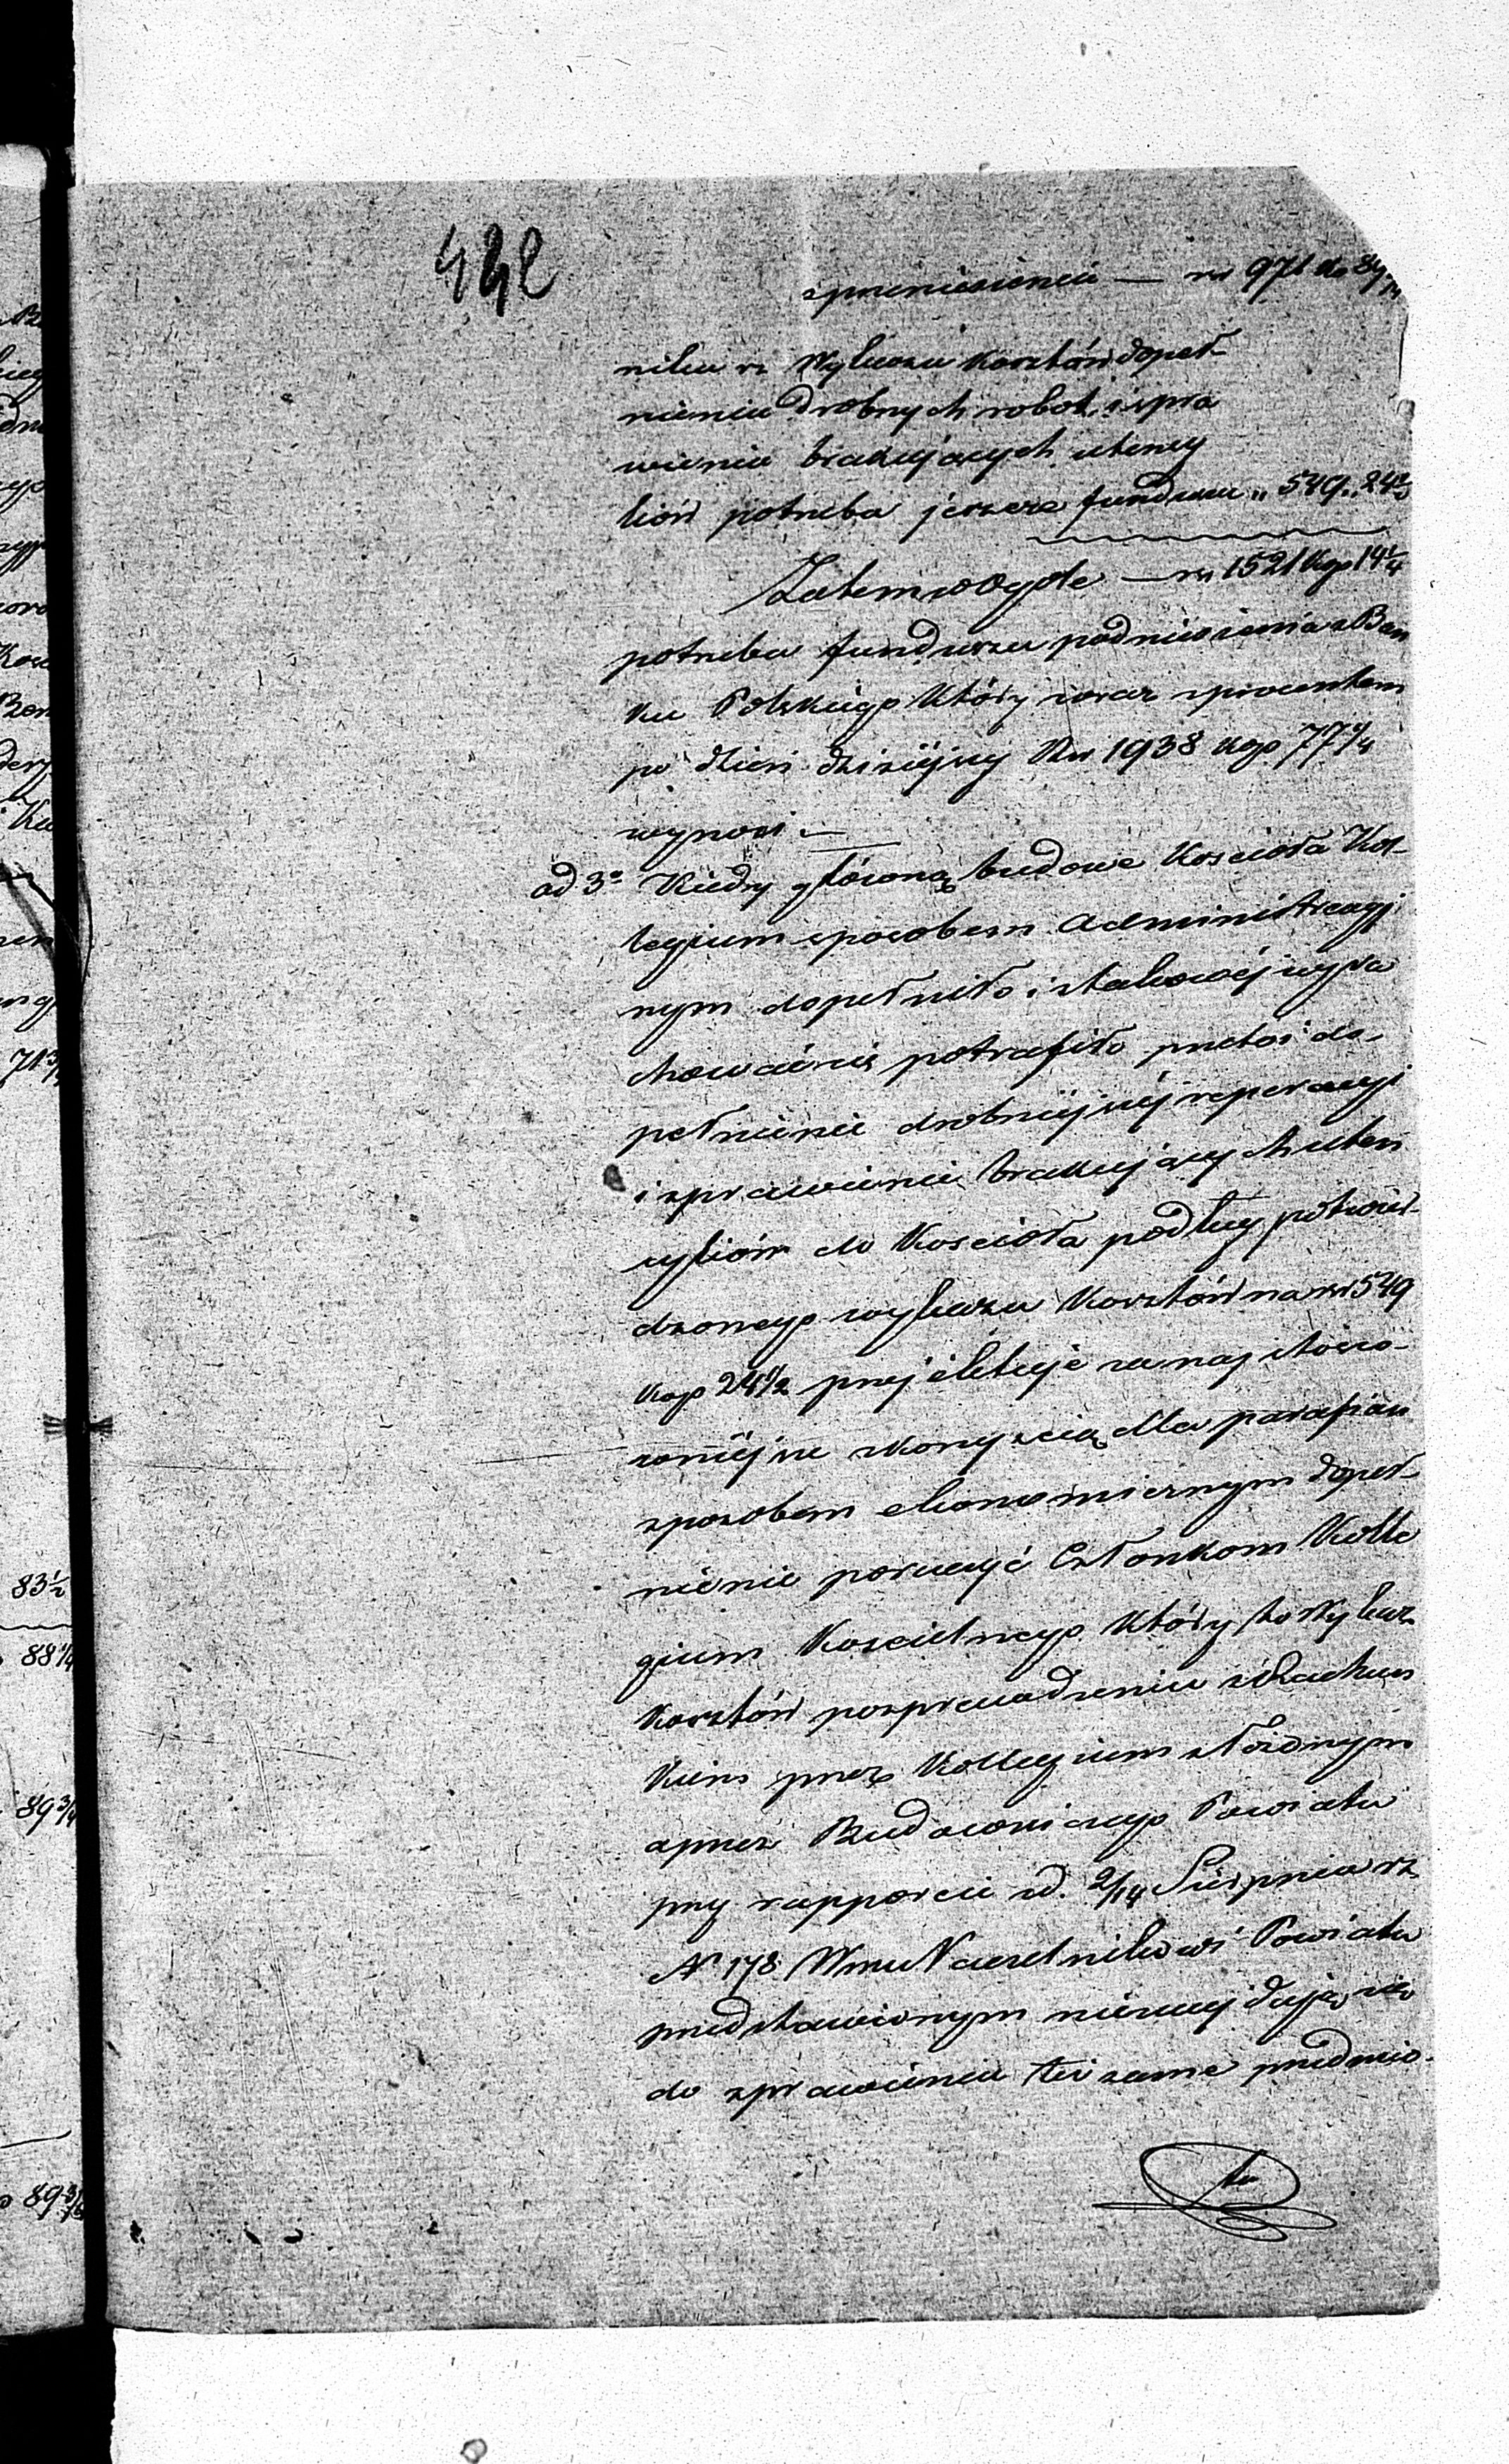 432
z przeniesienia — rs 971 ko 89 3/4
nika rs Wykazu kosztów dopeł-
nienia drobnych robot i spra
wienia brakujących utensy
liów potrzeba jeszcze funduszu „ 549 „ 24 1/2
Zatem w ogóle — rs 1521 kop 14 1/4
potrzeba funduszu podniesienia z Ban
ku Polskiego który wraz z procentem
po dzień dzisiéjszy Rsr 1938 kop. 77 1/4
wynosi —
ad 3o Kiedy główną budowe Kościoła Kol-
legium sposobem administracyj
nym dopełniło i z takowéj wyra
chować się potrafiło przeto i do-
pełnienie drobniejszéj reperacyi
i sprawienie brakujących uten
syliów do Kościoła podług potwier-
dzonego wykazu Kosztów na rs 549
kop 24 1/2 przez
za naj stóso-
wniéjsze z korzyścią dla parafian
sposobem ekonomicznym dopeł-
nienie poruczyć Członkom Kolle
gium Kościelnego który to Wykaz
Kosztów po sprawdzeniu z Rachun
kiem przez Kollegium złożonym
a przez Budowniczego Powiatu
przy rapporcie z d. 2/14 Sierpnia rz
N 178 Wmu Naczelnikowi Powiatu
przedstawionym
dują się
do sprawienia też same przedmio-